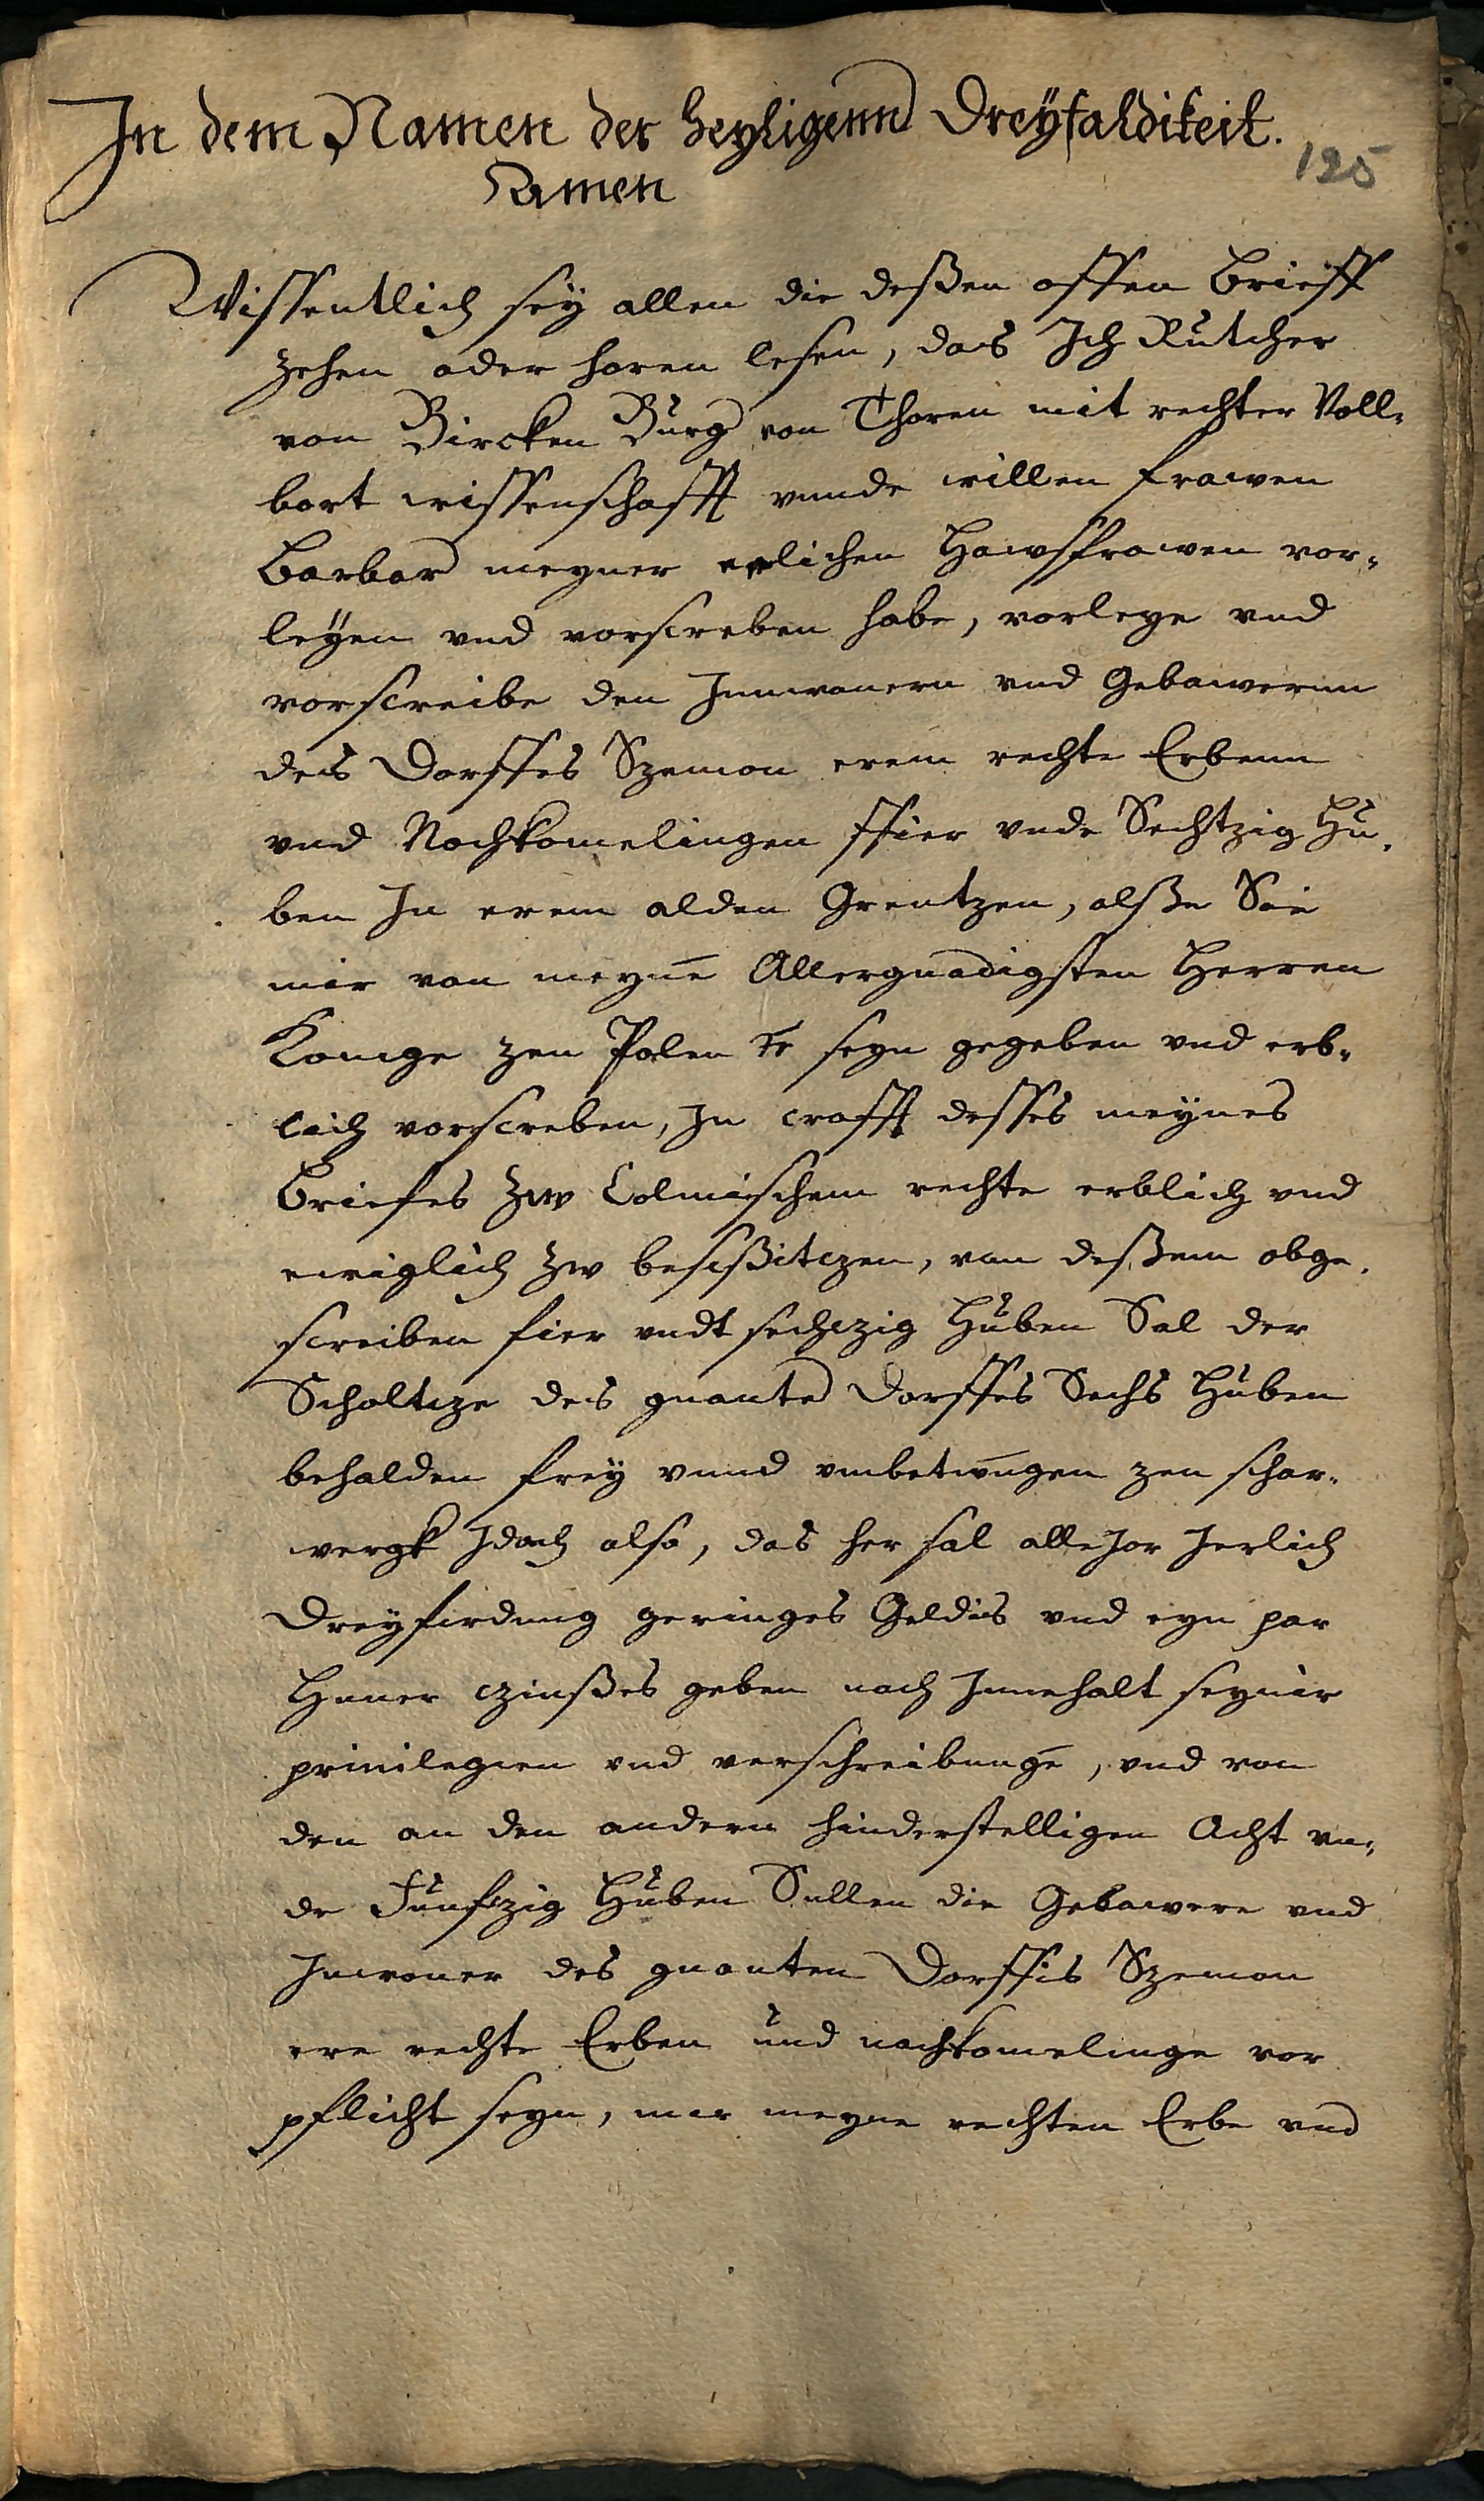 In dem Namen der heyligenn Dreyfaldikeit.
125
Amen
Wissentlich sey allen die deßen offen brieff
zehen oder horen lesen, das Ich Rutcher
von Bircken Burg von Thoren mit rechter Voll„
bort wissenschafft vnnde willen frawen
Barbar meyner erlichen Hawsfrawen vor„
leÿen vnd vorscreben habe, vorleye vnd
vorscreibe den Innwonern vnd Gebawernn
des Dorffes Szemon erem rechte Erbenn
vnd Nochkomelingen ffier vnde Sechtzig Hu„
ben In erem alden Grentzen, alße Sie
mir von meynē Allergnadigsten Herren
Konige zcu Polen etc seyn gegeben vnd erb„
lich vorscreben, In crafft desses meynes
briefes zcw Colmischem rechte erblich vnd
ewiglich zw besißitczen, von deßem obge„
screiben fier vndt sechczig Huben Sal der
Scholtcze des gnante Dorffes Sechs Huben
behalden freÿ vnnd vmbetwūgen zcu schar„
wergk Idoch also, das her sal alle Jor Jerlich
Dreyfirdung geringes Geldis vnd eyn par
Huner czinßes geben noch Innehalt seynir
priuilegien vnd verschreibungē, vnd von
den an den andern hinderstelligen Acht vn„
de Funfczig Huben Sullen die Gebawere vnd
Inwoner des gnanten Dorffis Szemon
ere rechte Erben und nachkomelinge vor
pflicht seyn, mir meyne rechten Erbe vnd